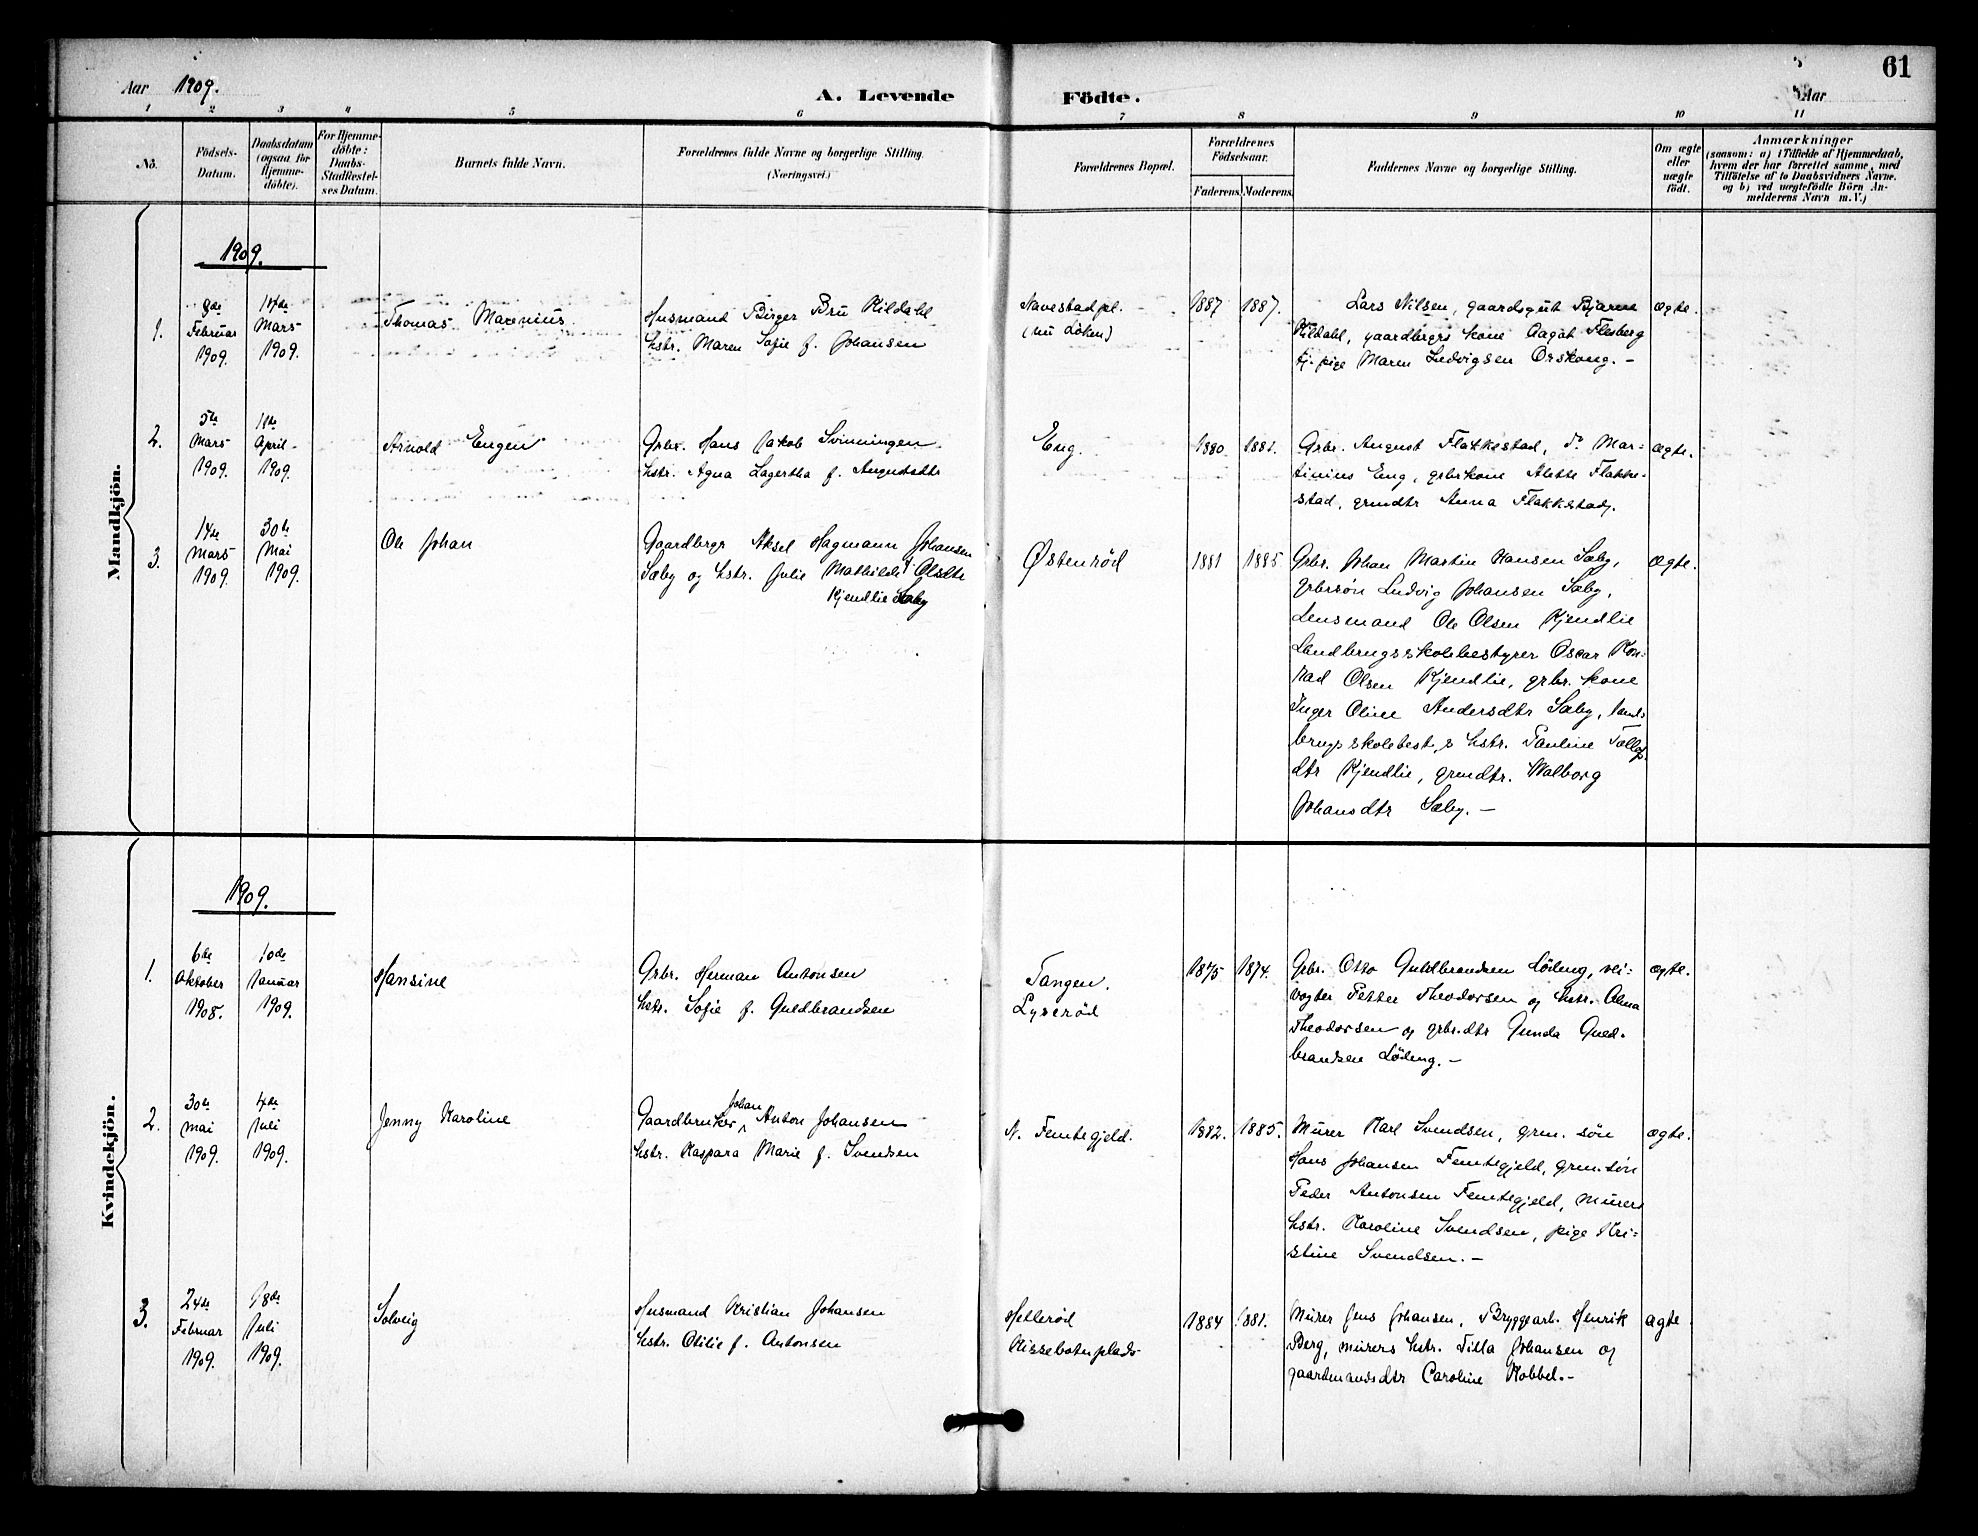 61
Aar 1909.
A. Levende Födte.
Aar
1 2 3 4 5 6 7 8 9 10 11
No.
Födsels-
Datum.
Daabsdatum
(ogsaa for
Hjemme-
döbte).
For Hjemme-
döbte:
Daabs-
Stadfestel-
ses Datum.
Barnets fulde Navn.
Forældrenes fulde Navne og borgerlige Stilling.
(Næringsvei.)
Forældrenes Bopæl.
Forældrenes
Födselsaar.
Faderens. Moderens.
Faddernes Navne og borgerlige Stilling.
Om ægte
eller
uægte
födt.
Anmærkninger
(saasom: a) i Tilfælde af Hjemmedaab,
hvem der har forrettet samme, med
Tilföielse af to Daabsvidners Navne.
og b) ved uægtefödte Börn An-
melderens Navn m. V.)
Mandkjön.
1909.
1.
9de
Februar
1909.
14de
Mars
1909.
Thomas Marenius
Husmand Birger Bru Kildahl
hstr. Maren Sofie f. Johansen
Navestadpl.
(nu Löken)
1887 1887.
Lars Nilsen, gaardsgut Bjarne
Kildahl, gaardbrgs kone Aagot Flesberg
tj. pige Maren Ludvigsen Orskoug. –
ægte.
2.
5te
Mars
1909.
11te
April
1909.
Arnold Engen
Grbr. Hans Jakob Svinningen
hstr. Agna Lagertha f. Augustdtr
Eng.
1880 1881.
Grbr. August Flakkestad, do Mar-
tinius Eng, grbrkone Alette Flakke-
stad, grmdtr Anna Flakkstad.
ægte.
3.
14de
Mars
1909.
30te
Mai
1909.
Ole Johan
Gaardbrgr Aksel Hagmann Johansen
Sæby og hstr. Julie Mathilde Olsdtr
Kjendlie Sæby
Østenröd
1881 1885
Grbr. Johan Martin Hansen Sæby,
grbrsön Ludvig Johansen Sæby,
Lensmand Ole Olsen Kjendlie
Landbrugsskolebestyrer Oscar Kon-
rad Olsen Kjendlie, grbr. kone
Inger Oline Andersdtr Sæby, land-
brugsskolebest,s hstr. Pauline Tollefs
dtr Kjendlie, grmdtr. Walborg
Johansdtr Sæby. –
ægte.
Kvindekjön.
1909.
1.
6te
Oktober
1908.
10de
Januar
1909.
Hansine
Grbr. Herman Antonsen
hstr. Sofie f. Guldbrandsen
Tangen.
Lyseröd
1875 1874.
Grbr. Otto Guldbrandsen Löding, vei-
vogter Petter Theodorsen og hstr. Alma
Theodorsen og grbr.dtr Gunda Guld-
brandsen Löding. –
ægte.
2.
30te
mai
1909.
4de
Juli
1909.
Jenny Karoline
Johan
Gaardbruker Anton Johansen
hstr. Kaspara Marie f. Svendsen
N. Femtegjeld.
1882. 1885.
Murer Karl Svendsen, grm. sön
Hans Johansen Femtegjeld, grm.sön
Peder Antonsen Femtegjeld, murers
hstr. Karoline Svendsen, pige Kri-
stine Svendsen. –
ægte.
3.
24de
Februar
1909.
18de
Juli
1909.
Solveig
Husmand Kristian Johansen
hstr. Otilie f. Antonsen
Helleröd
1884 1881.
Murer Jens Johansen, Bryggearb. Henrik
Berg, murers hstr. Tilla Johansen og
gaardmandsdtr Caroline Kobbel. –
ægte